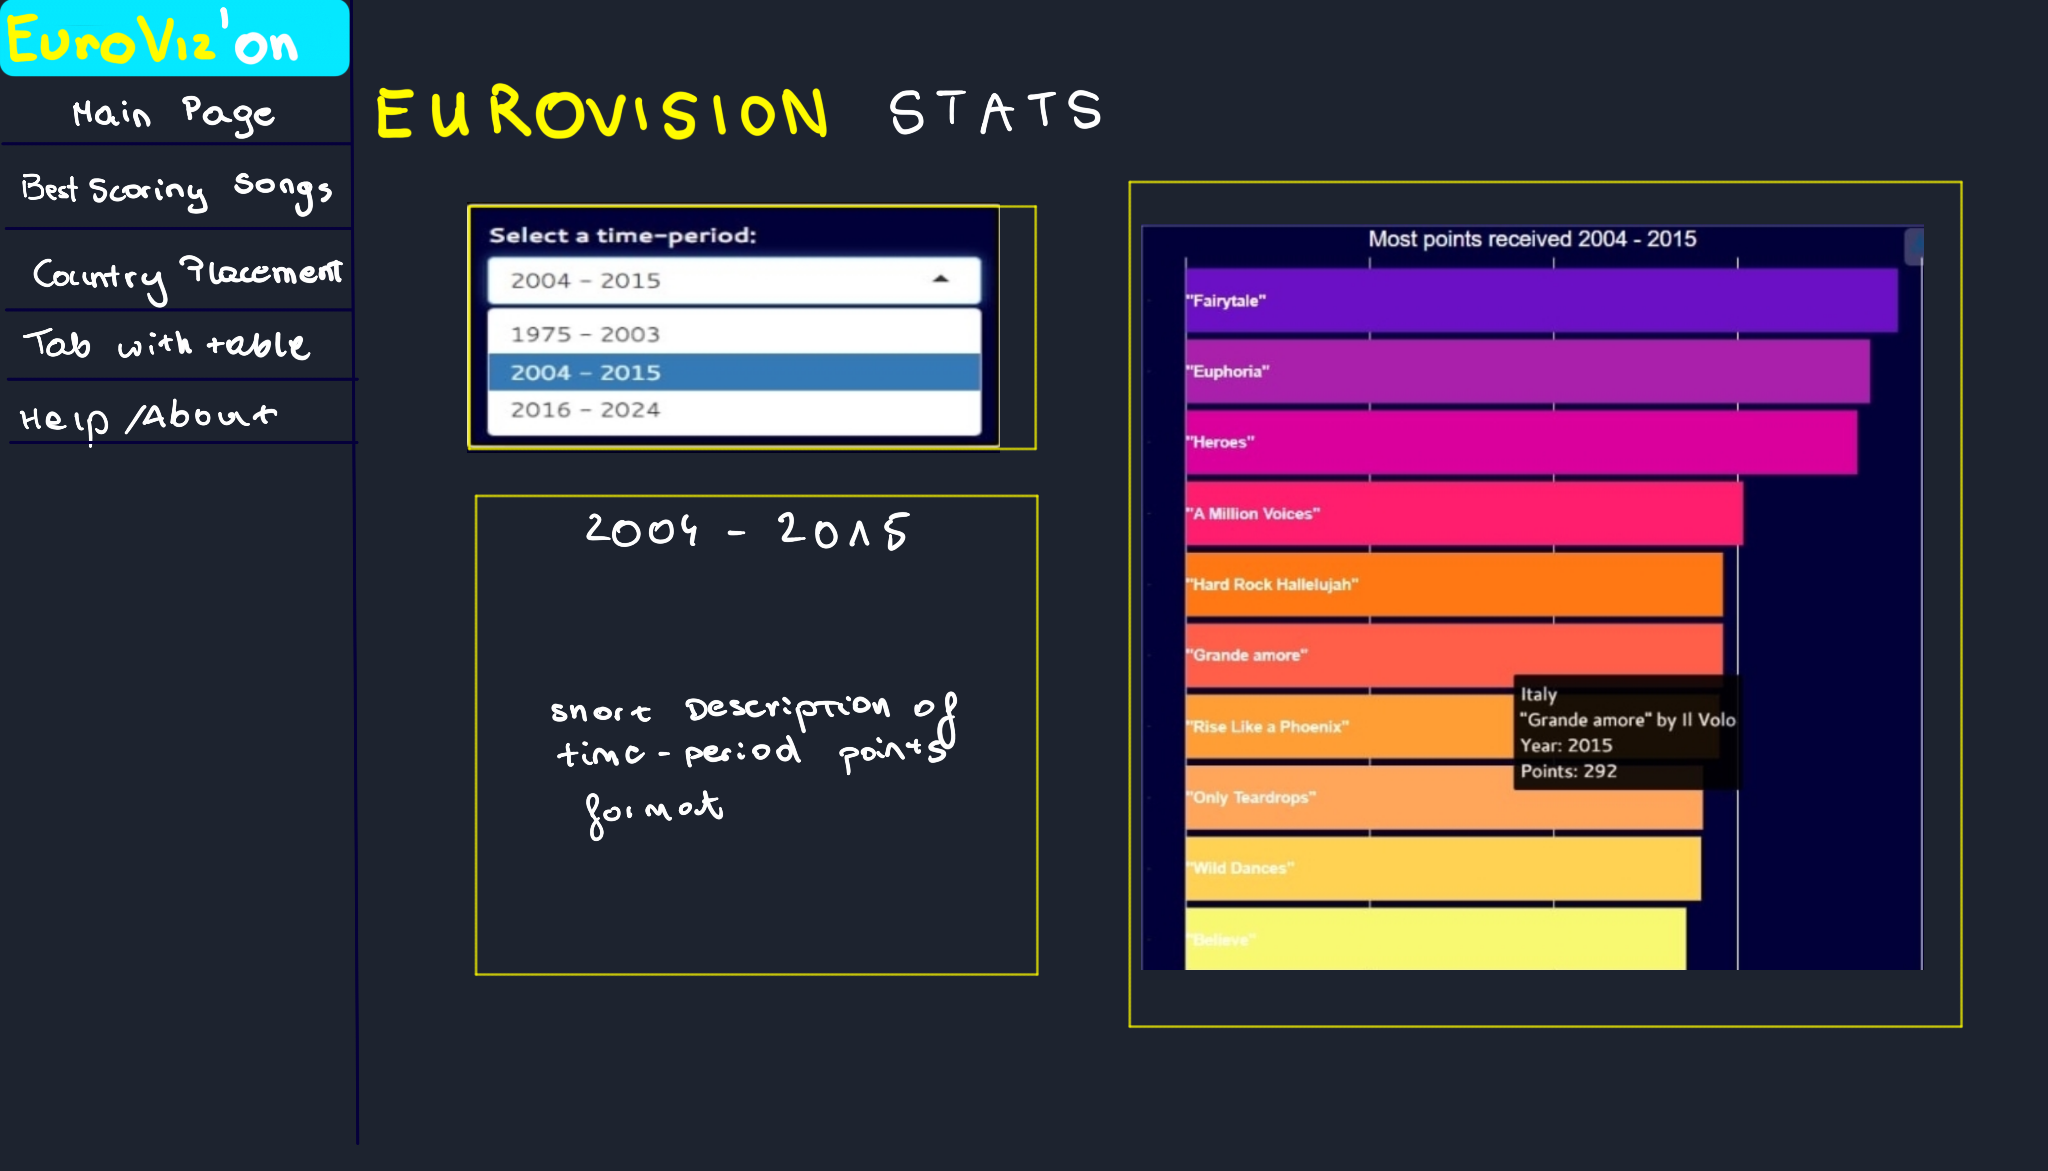 EuroViz'on
Main Page
Best Scoring Songs
Country Placement
Tab with table
Help/About
EUROVISION STATS
Select a time-period:
2004 - 2015
1975 - 2003
2004 - 2015
2016 - 2024
2004 - 2015
short Description of
time-period points
format
Most points received 2004 - 2015
"Fairytale"
"Euphoria"
"Heroes"
"A Million Voices"
"Hard Rock Hallelujah"
"Grande amore"
"Rise Like a Phoenix"
"Only Teardrops"
"Wild Dances"
"Believe"
Italy
"Grande amore" by Il Volo
Year: 2015
Points: 292